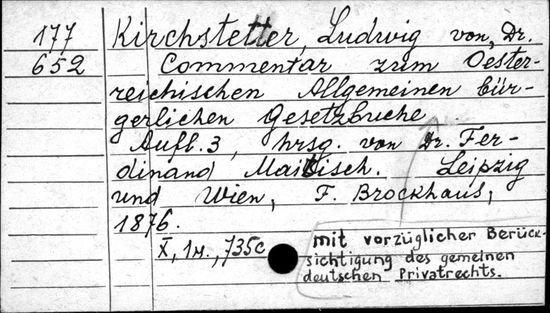 177
652
Kirchstetter, Ludwig von, Dr.
Commentar zum Oester-
reichischen Allgemeinen bür-
gerlichen Gesetzbuche
Aufl. 3, hrsg. von Dr. Fer-
dinand Maitisch. Leipzig
und Wien, F. Brockhaus,
1876.
X, 1н., 735с
mit vorzüglicher Berück-
sichtigung des gemeinen
deutschen Privatrechts.